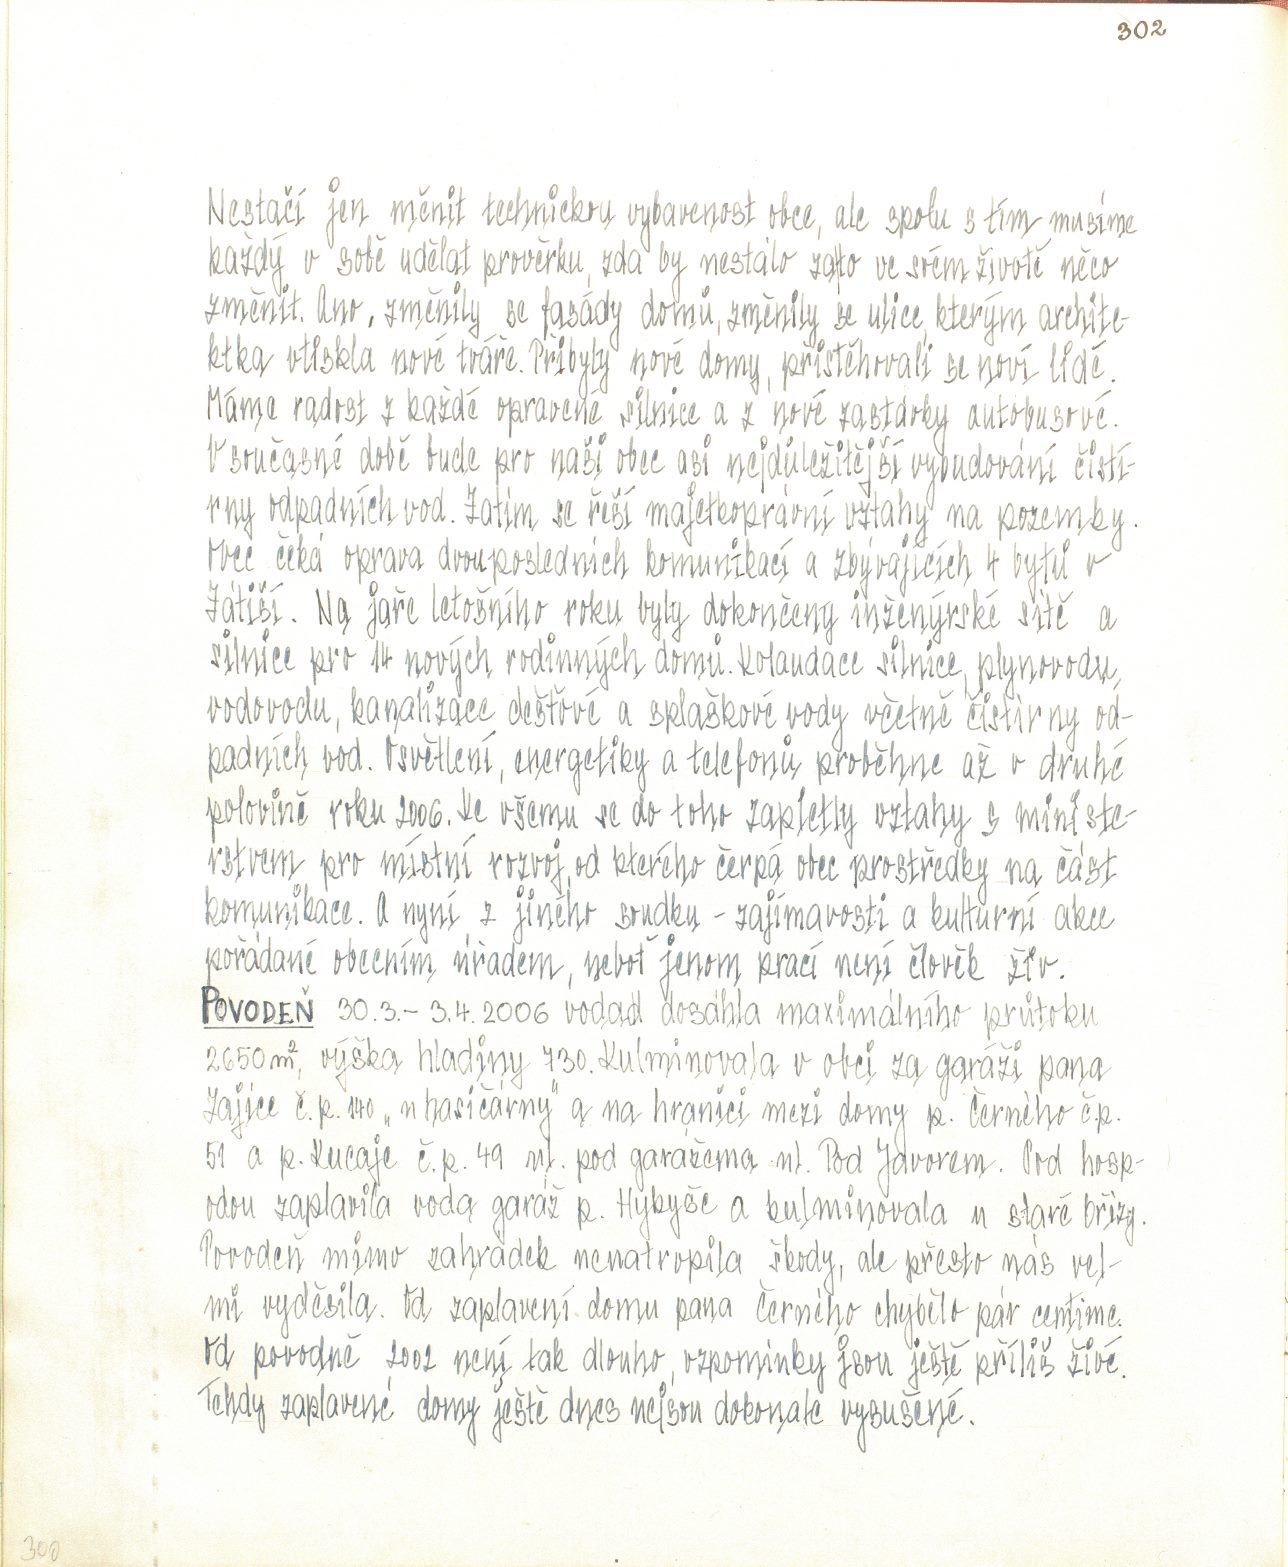 302
Nestačí jen měnit technickou vybavenost obce, ale spolu s tím musíme
každý v sobě udělat prověrku, zda by nestálo za to ve svém životě něco
změnit. Ano, změnily se fasády domů, změnily se ulice, kterým archite-
ktka vtiskla nové tváře. Přibyly nové domy, přistěhovali se noví lidé.
Máme radost z každé opravené silnice a z nové zastávky autobusové.
V současné době bude pro naši obec asi nejdůležitější vybudování čistí-
rny odpadních vod. Zatím se řeší majetkoprávní vztahy na pozemky.
Obec čeká oprava dvou posledních komunikací a zbývajících 4 bytů v
Zátiší. Na jaře letošního roku byly dokončeny inženýrské sítě a
silnice pro 14 nových rodinných domů. Kolaudace silnice, plynovodu,
vodovodu, kanalizace dešťové a splaškové vody včetně čistírny od-
padních vod. Osvětlení, energetiky a telefonů proběhne až v druhé
polovině roku 2006. Ke všemu se do toho zapletly vztahy s ministe-
rstvem pro místní rozvoj, od kterého čerpá obec prostředky na část
komunikace. A nyní z jiného soudku - zajímavosti a kulturní akce
pořádané obecním úřadem, neboť jenom prací není člověk živ.
POVODEŇ 30.3. - 3.4. 2006 voda dosáhla maximálního průtoku
2650 m², výška hladiny 730. Kulminovala v obci za garáží pana
Zajíce č.p. 140 „u hasičárny" a na hranici mezi domy p. Černého č.p.
51 a p. Kucaje č.p. 49 ul. pod garážema ul. Pod Javorem. Pod hosp-
odou zaplavila voda garáž p. Hykyše a kulminovala u staré břízy.
Povodeň mimo zahrádek nenatropila škody, ale přesto nás vel-
mi vyděsila. Od zaplavení domu pana Černého chybělo pár centime.
Od povodně 2002 není tak dlouho, vzpomínky jsou ještě příliš živé.
Tehdy zaplavené domy ještě dnes nejsou dokonale vysušené.
300